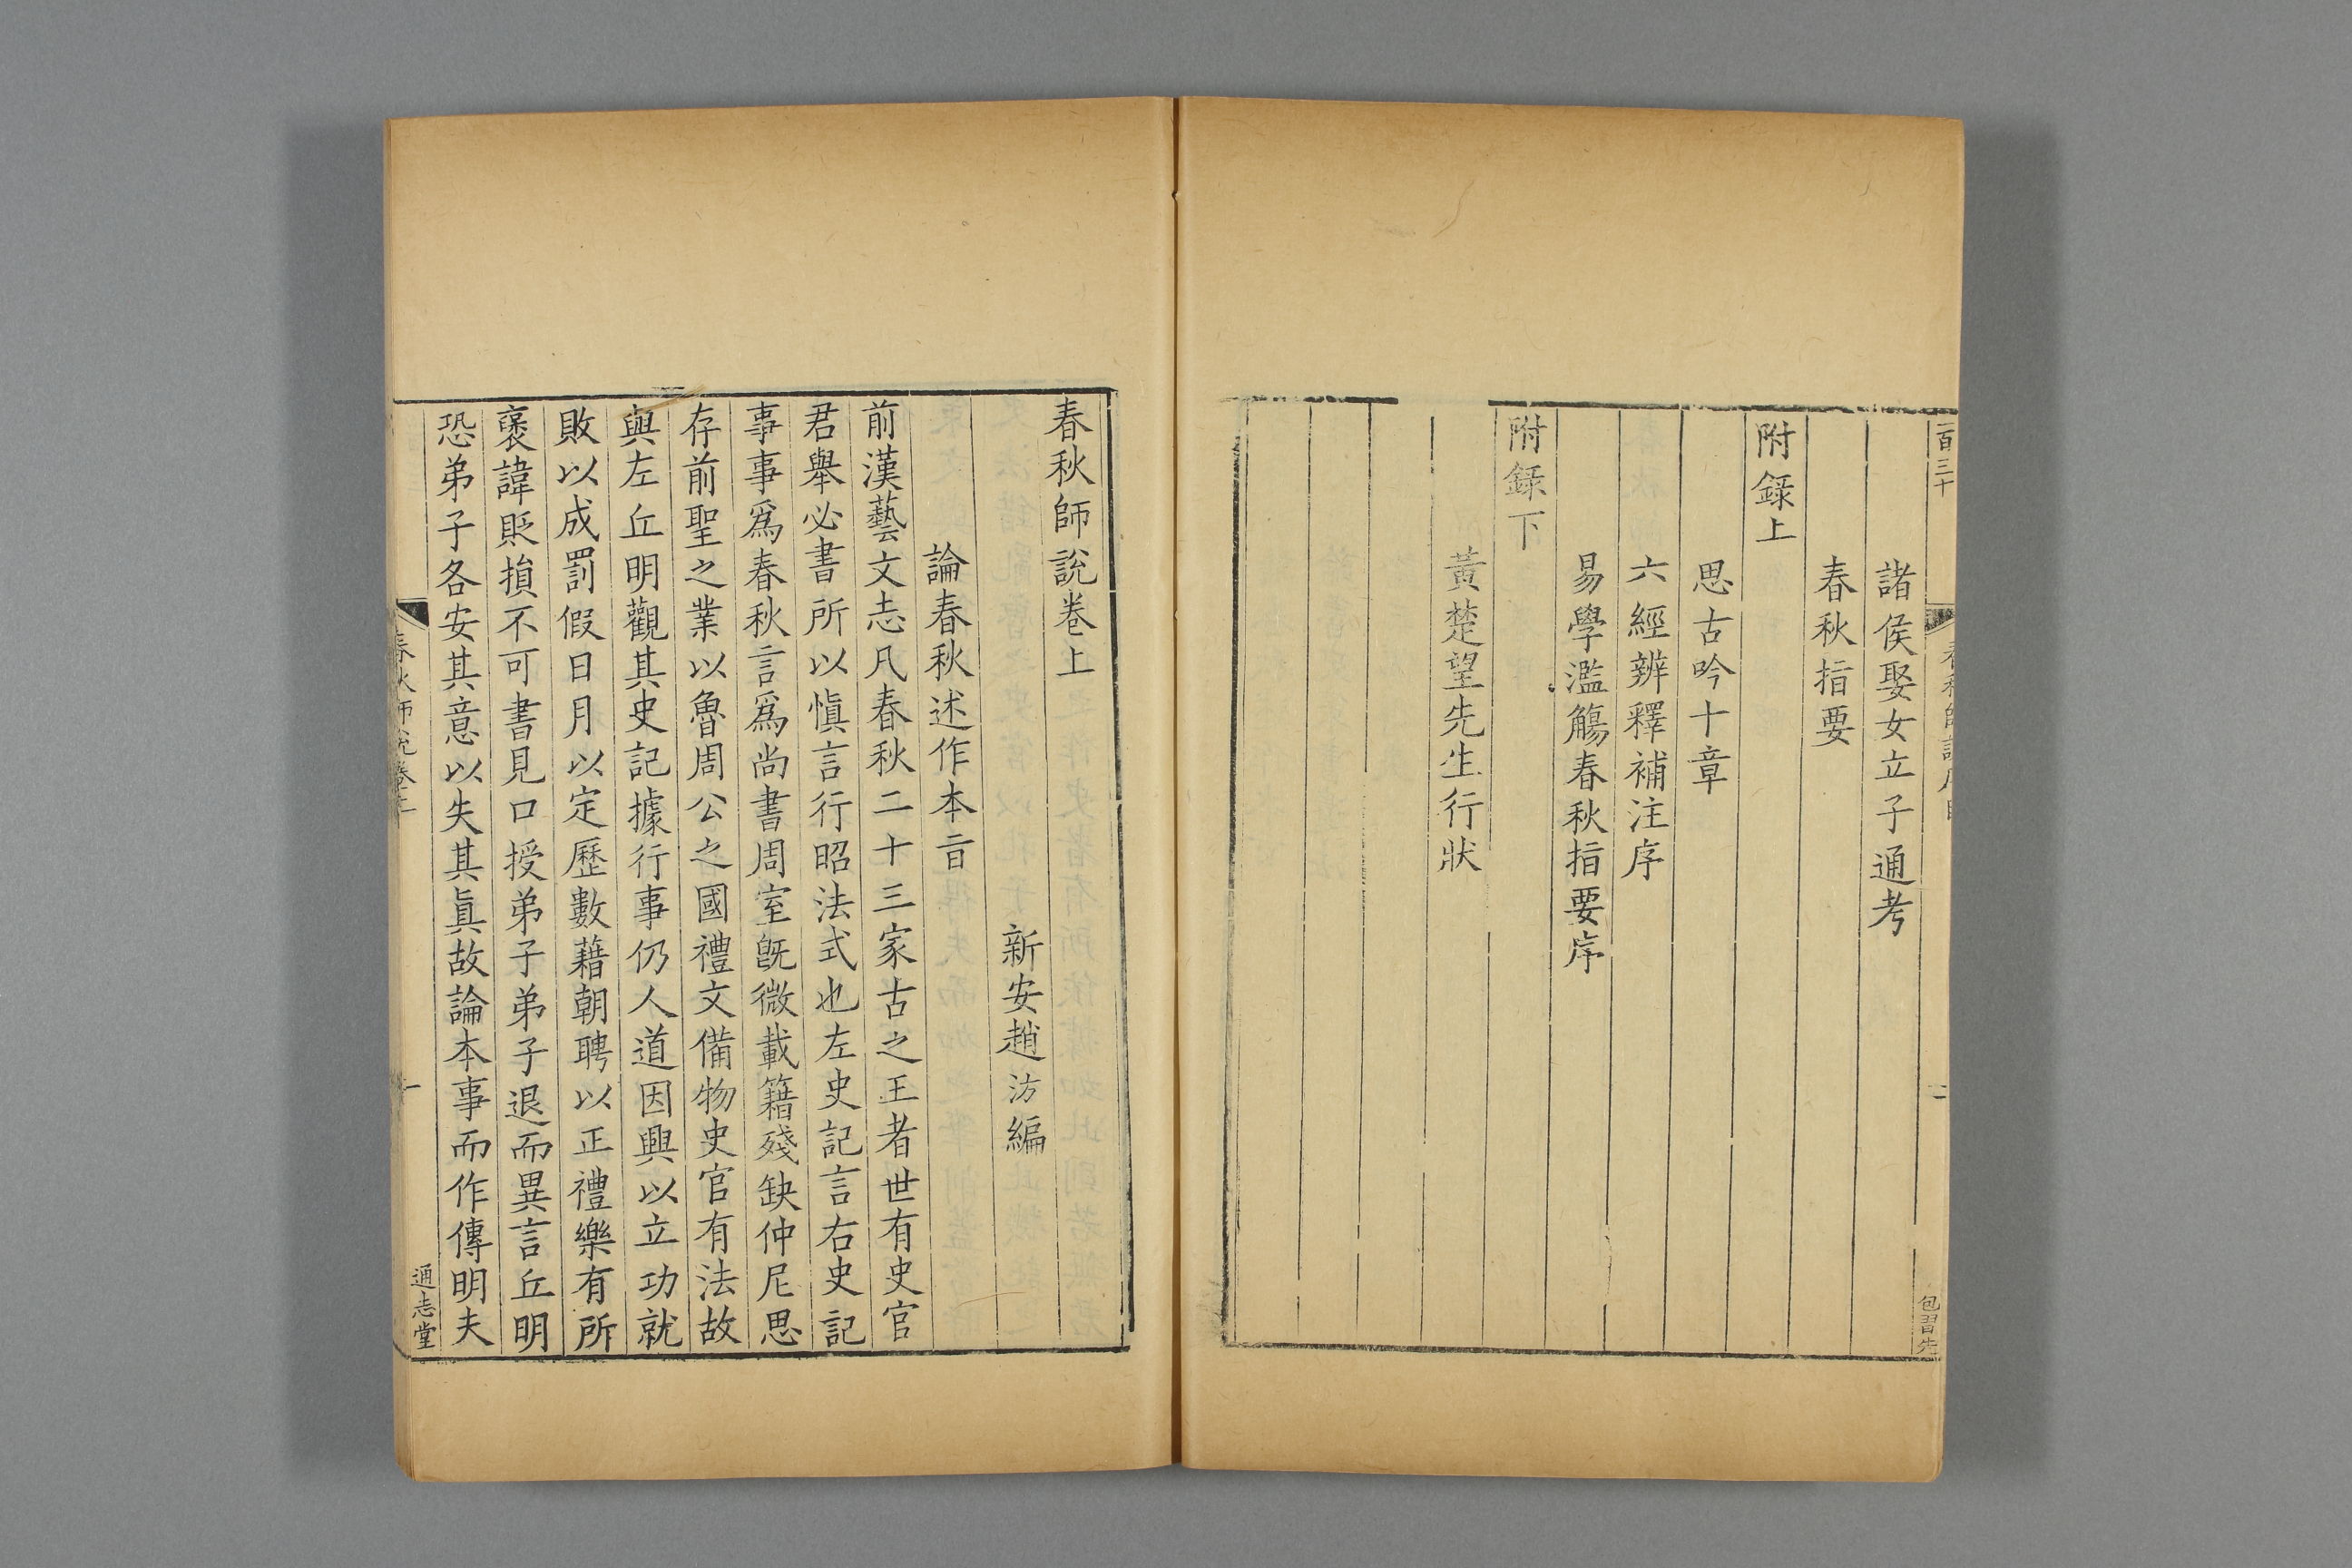 一百三十
二
包習先
諸侯娶女立子通考
春秋指要
附錄上
思古吟十章
六經辨釋補注序
易學濫觴春秋指要序
附錄下
黃楚望先生行狀
春秋師說卷上
新安趙汸編
論春秋述作本旨
前漢藝文志凡春秋二十三家古之王者世有史官
君舉必書所以愼言行昭法式也左史記言右史記
事事爲春秋言爲尚書周室旣微載籍殘缺仲尼思
存前聖之業以魯周公之國禮文備物史官有法故
與左丘明觀其史記據行事仍人道因興以立功就
敗以成罰假日月以定歷數藉朝聘以正禮樂有所
襃諱貶損不可書見口授弟子弟子退而異言丘明
恐弟子各安其意以失其眞故論本事而作傳明夫
春秋師說卷上
一
通志堂